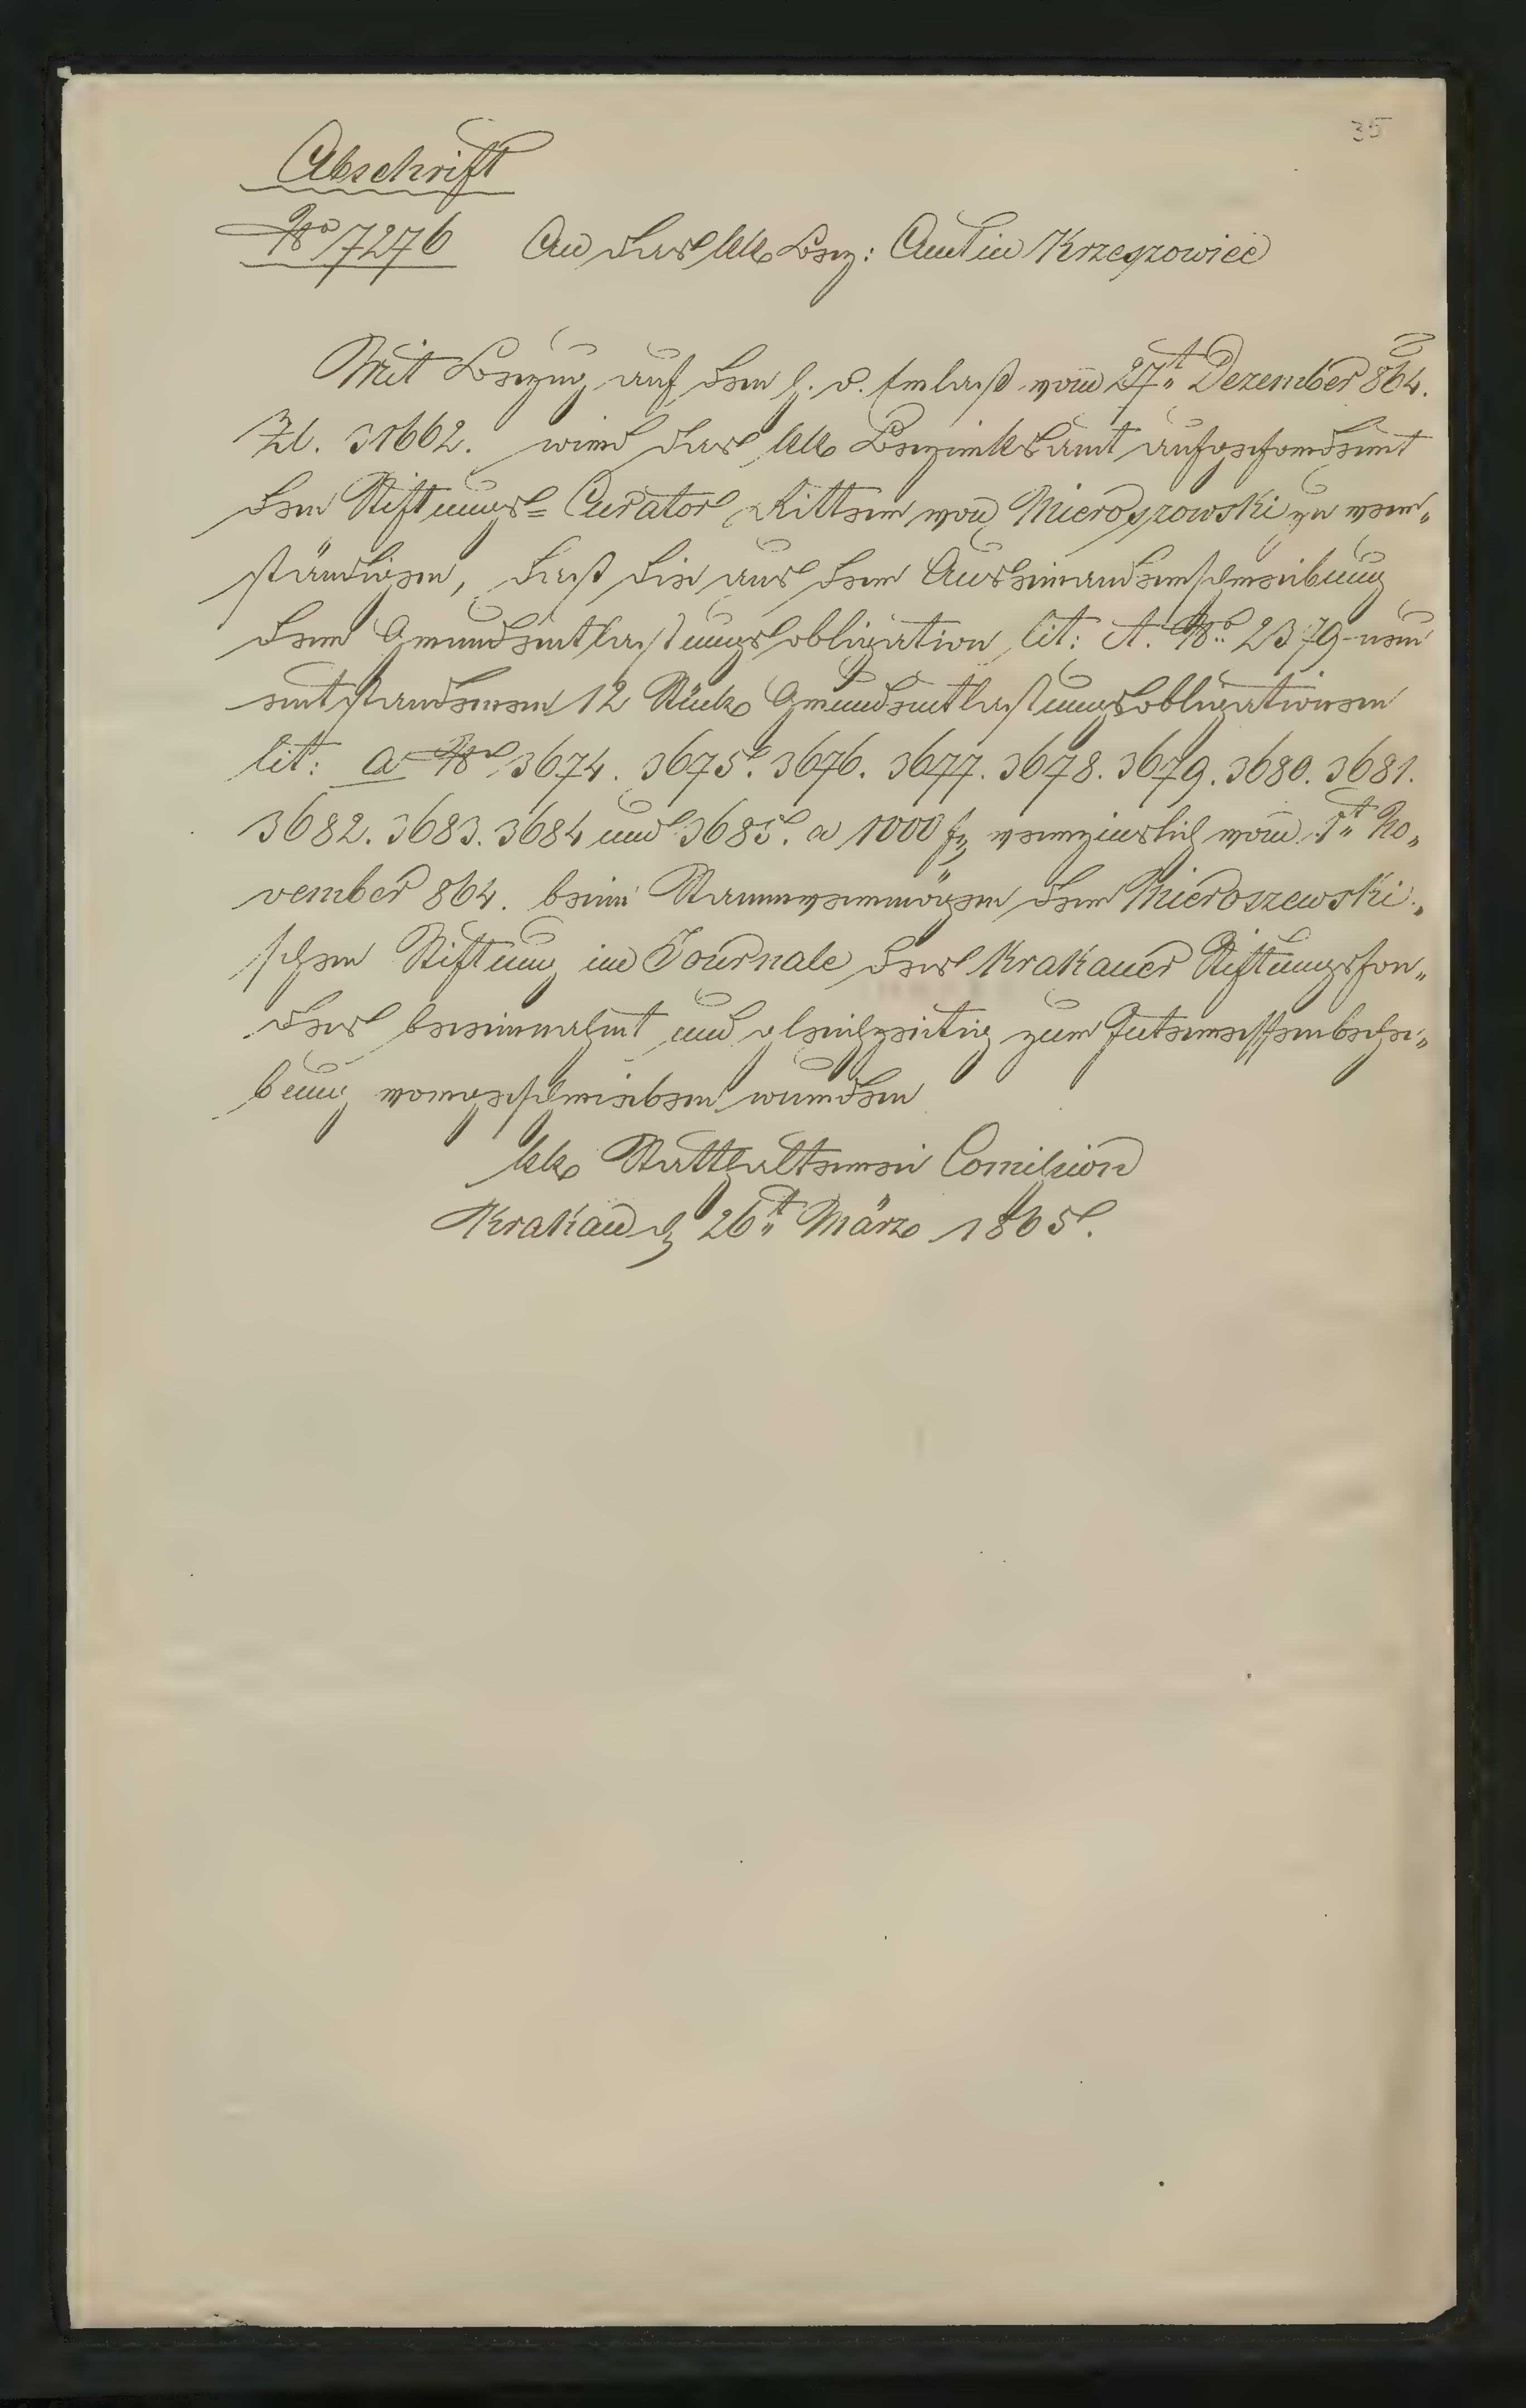 35
Abschrift
No 7276 An das kk Bez: Amt in Krzeszowice
Mit Bezug auf den h. o. Erlaß vom 27t. Dezember 864.
Zl. 31662. wird das kk Bezirksamt aufgefordert
den Stiftungs= Curator Ritter von Mieroszowski zu ver„
ständigen, daß die aus der Auseinanderschreibung
der Grundentlastungsobligation lit: A. No. 2379 neu
entstandenen 12 Stück Grundentlastungsobligationen
lit: a No 3674. 3675. 3676. 3677. 3678. 3679. 3680. 3681.
3682. 3683. 3684 und 3685. a 1000 f, verzinslich vom 1t. No„
vember 864. beim Stammvermögen der Mieroszewski„
schen Stiftung im Journale des Krakauer Stiftungsfon„
des vereinnahmt und gleichzeitig zur Interessenbehe„
bung vorgeschrieben wurden
kk Statthalterei Comission
Krakau d 26t. März 1865.